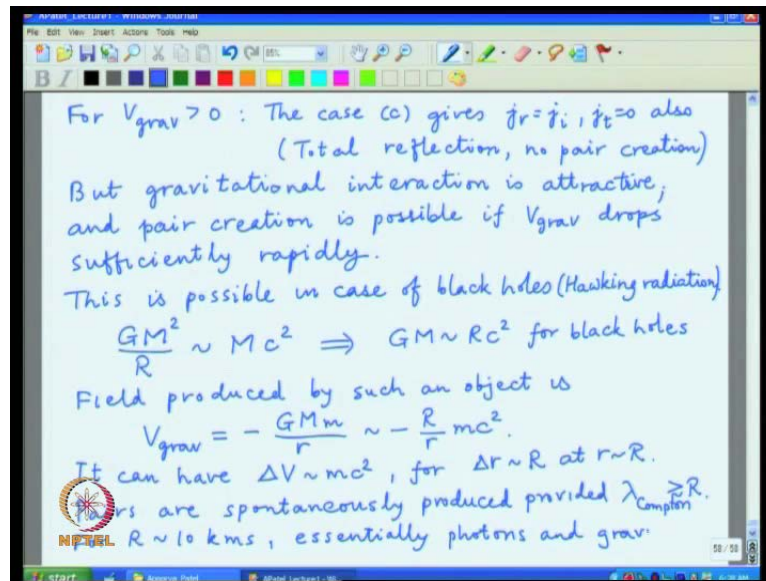 APatel_Lecture1 - Windows Journal
File Edit View Insert Actions Tools Help
85%
B I
For V_grav > 0 : The case (c) gives j_r = j_i, j_t = 0 also
(Total reflection, no pair creation)
But gravitational interaction is attractive,
and pair creation is possible if V_grav drops
sufficiently rapidly.
This is possible in case of black holes (Hawking radiation)
GM²/R ~ Mc² ⇒ GM ~ Rc² for black holes
Field produced by such an object is
V_grav = - GMm/r ~ - R/r mc².
It can have ΔV ~ mc², for Δr ~ R at r ~ R.
Pairs are spontaneously produced provided λ_Compton ≳ R.
R ~ 10 kms, essentially photons and grav
NPTEL
58/58
start
Apoorva Patel
APatel_Lecture1 - Wi...